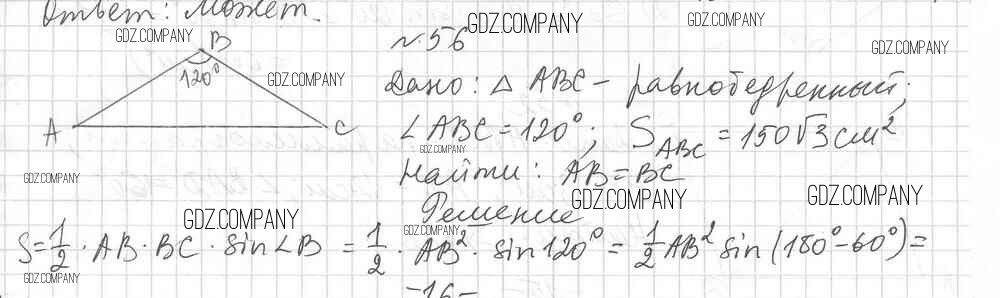 Ответ: Может.
GDZ.COMPANY
GDZ.COMPANY
GDZ.COMPANY
B
№56
GDZ.COMPANY
120°
GDZ.COMPANY
Дано: △ ABC – равнобедренный;
A
C
∠ABC = 120°; S_ABC = 150√3 см²
GDZ.COMPANY
Найти: AB = BC
GDZ.COMPANY
GDZ.COMPANY
GDZ.COMPANY
GDZ.COMPANY
Решение
GDZ.COMPANY
S = 1/2 · AB · BC · sin∠B = 1/2 · AB² · sin 120° = 1/2 AB² sin (180° – 60°) =
GDZ.COMPANY
–16–